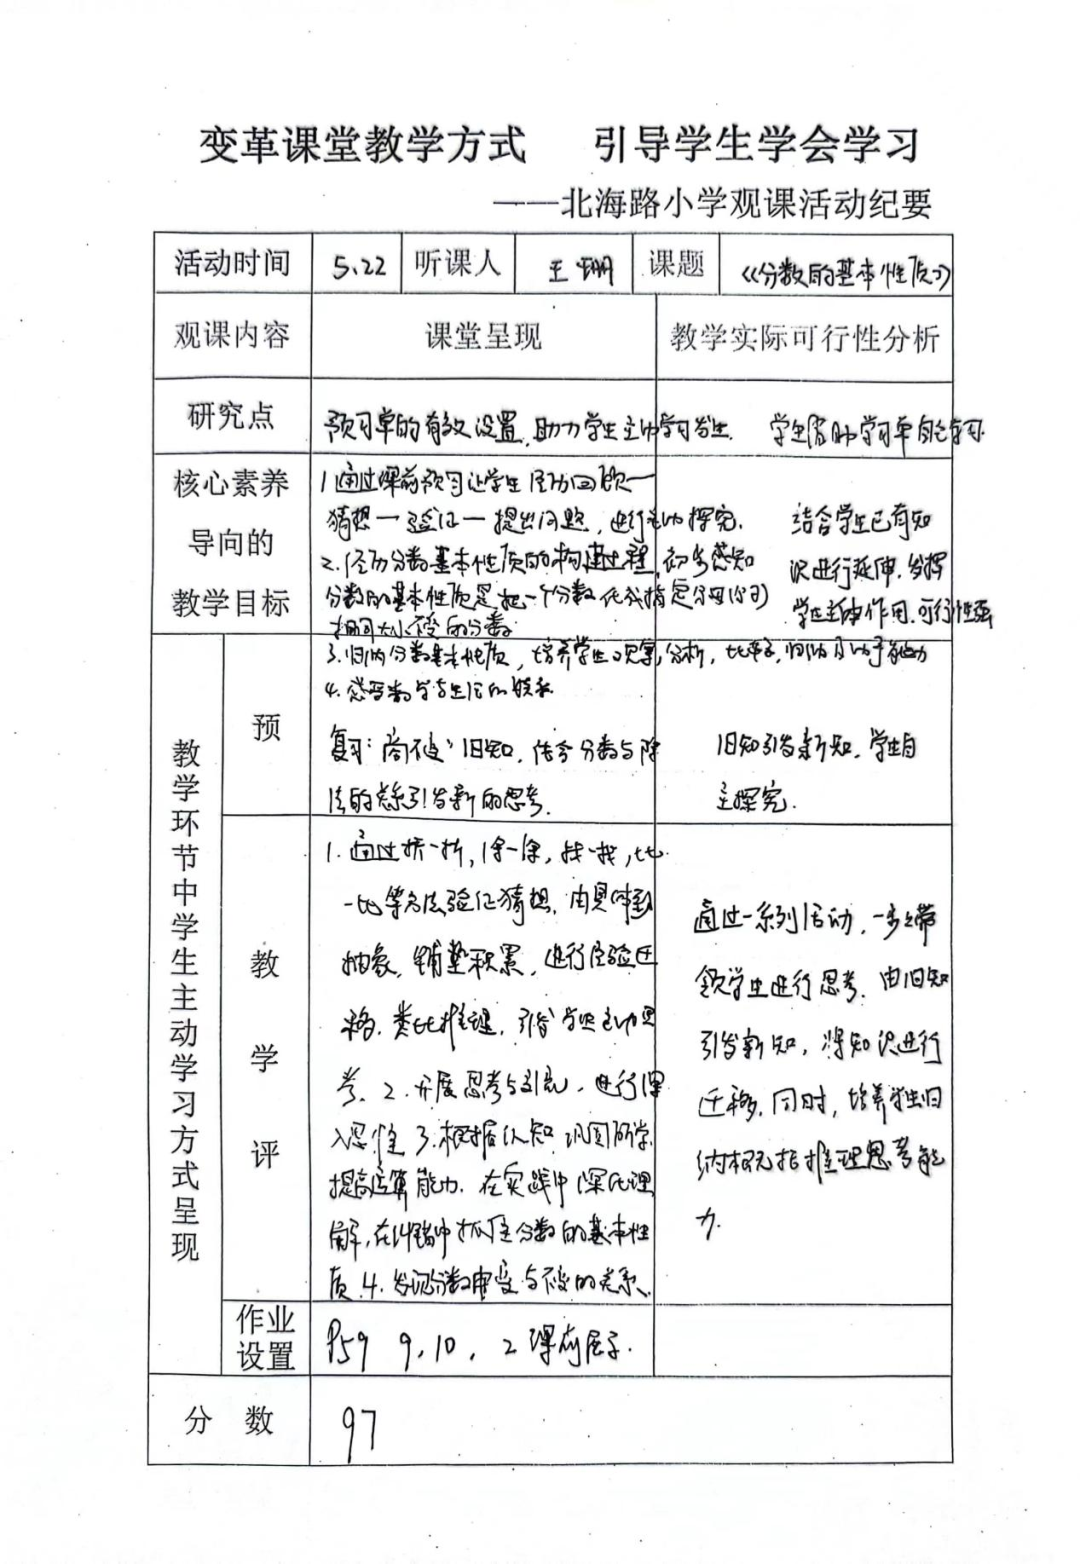 变革课堂教学方式 引导学生学会学习
——北海路小学观课活动纪要
活动时间 5.22 听课人 王珊 课题 《分数的基本性质》
观课内容 课堂呈现 教学实际可行性分析
研究点 预习单的有效设置,助力学生主动学习发生. 学生借助学习单自主学习.
核心素养
导向的
教学目标
1.通过课前预习让学生 回顾一
猜想一验证一提出问题,进行主动探究.
2.经历分数基本性质的构建过程,初步感知
分数的基本性质是把一个分数化成指定分母(分子)
相同大小不变的分数
3.归纳分数基本性质,培养学生观察,分析,比较,归纳及动手能力
4.感受数学与生活的联系
结合学生已有知
识进行延伸.发挥
学生主体作用.可行性强
教学环节中学生主动学习方式呈现
预
复习“商不变”旧知,结合分数与除
法的关系引发新的思考.
旧知引发新知.学生自
主探究.
教
学
评
1.通过折一折,涂一涂,找一找,比
一比等方法验证猜想.由具体到
抽象,铺垫积累,进行经验迁
移.类比推理,引发学生主动思
考.2.开展思考与 ,进行深
入思维3.根据认知 巩固所学
提高运算能力.在实践中深化理
解,在 中抓住分数的基本性
质.4.发现分数中变与不变的关系.
通过一系列活动,一步步带
领学生进行思考.由旧知
引发新知,将知识进行
迁移.同时,培养学生归
纳概括推理思考能
力.
作业
设置
P59 9,10, 2课前展示.
分 数 97